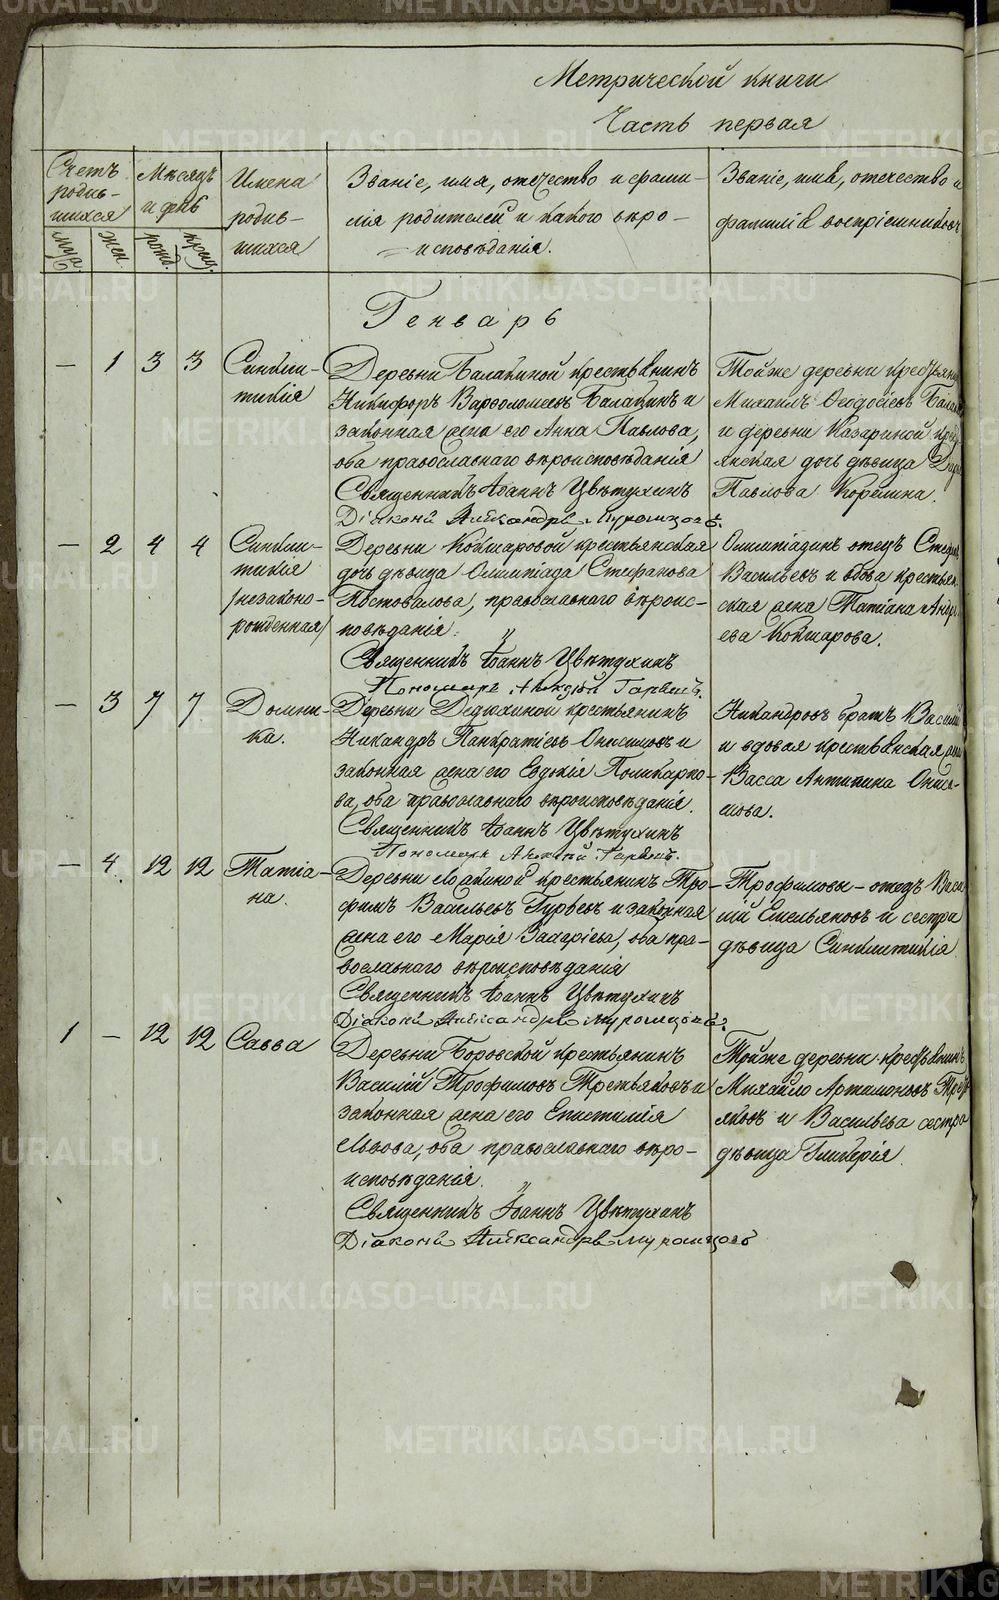 Метрической книги
Часть первая
Счетъ родив-шихся
Мѣсяцъ и день
Имена родив-шихся
Званіе, имя, отечество и фами-
лія родителей и какого вѣро-
исповѣданія.
Званіе, имя, отечество и
фамилія воспріемниковъ
муж. жен. рожд. крещ.
Генварь
— 1 3 3 Синкли-
тикія
Деревни Балакиной крестьянинъ
Никифоръ Варѳоломеевъ Балакинъ и
законная жена его Анна Павлова,
оба православнаго вѣроисповѣданія
Священникъ Іоаннъ Цвѣтухинъ
Діаконъ Александръ Муромцовъ.
Тойже деревни
Михаилъ Ѳеодосіевъ
и деревни Казариной
янская дочь дѣвица
Павлова Корелина.
— 2 4 4 Синкли-
тикія
/незаконо-
рожденная/
Деревни Кокшаровой крестьянская
дочь дѣвица Олимпіада Стефанова
Постовалова, православнаго вѣроис-
повѣданія.
Священникъ Іоаннъ Цвѣтухинъ
Пономарь
Олимпіадинъ отецъ
Васильевъ и вдова крестьян-
ская жена Татіана
ева Кокшарова.
— 3 7 7 Домни-
ка.
Деревни Дедюхиной крестьянинъ
Никандръ Панкратіевъ Онисимовъ и
законная жена его Евдокія Поликарпо-
ва, оба православнаго вѣроисповѣданія.
Священникъ Іоаннъ Цвѣтухинъ
Пономарь
Никандровъ братъ
и вдовая крестьянская
Васса Антипина Ониси-
мова.
— 4. 12 12 Татіа-
на.
Деревни крестьянинъ Тро-
фимъ Васильевъ Гурьевъ и законная
жена его Марія Захаріева, оба пра-
вославнаго вѣроисповѣданія
Священникъ Іоаннъ Цвѣтухинъ
Діаконъ Александръ Муромцовъ.
Трофимовы – отецъ Васи
лій Емельяновъ и сестра
дѣвица Синклитикія
1 — 12 12 Савва
Деревни Боровской крестьянинъ
Василій Трофимовъ Третьяковъ и
законная жена его Епистимія
Львова, оба православнаго вѣро-
исповѣданія.
Священникъ Іоаннъ Цвѣтухинъ
Діаконъ Александръ Муромцовъ
Тойже деревни крестьянинъ
Михайло Артамоновъ
яковъ и Васильева сестра
дѣвица Гликерія.
METRIKI.GASO-URAL.RU